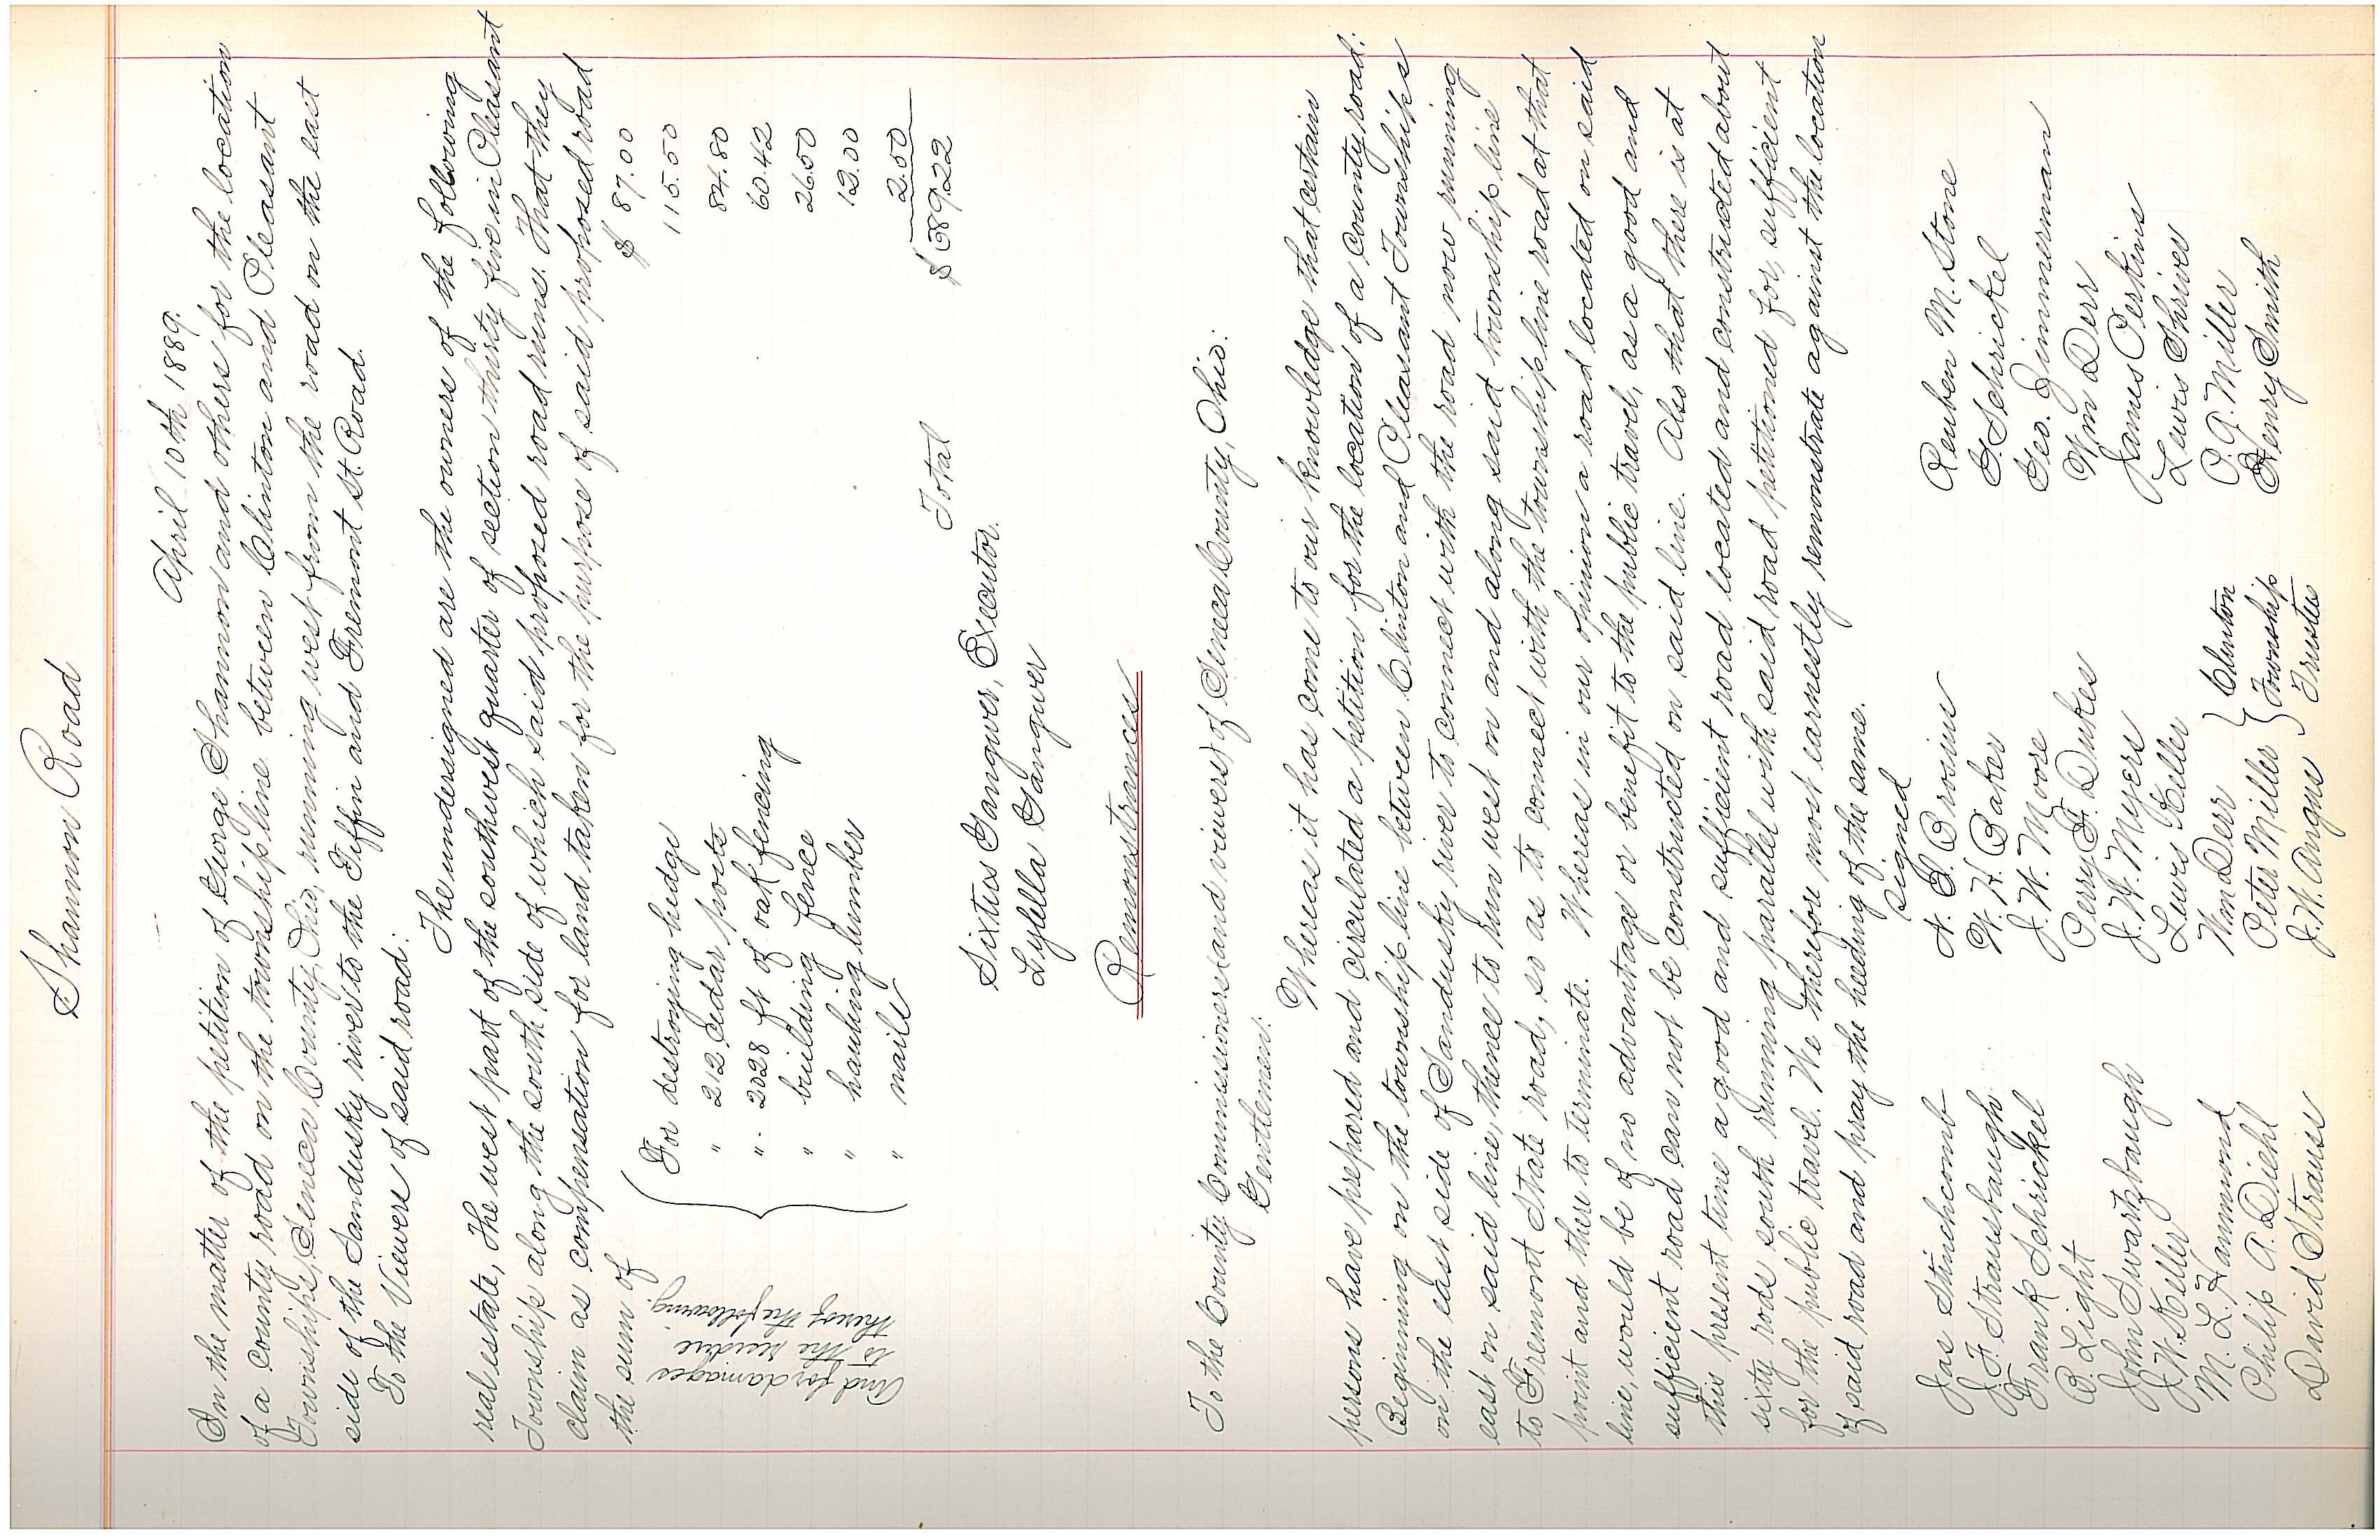 Shannon Road
April 10th 1889.
In the matter of the petition of George Shannon and others for the location
of a county road on the township line between Clinton and Pleasant
Townships, Seneca County, Ohio, running west from the road on the east
side of the Sandusky river to the Tiffin and Fremont St. Road.
To the Viewers of said road:
The undersigned are the owners of the following
real estate, the west part of the southwest quarter of section thirty five in Pleasant
Township along the south side of which said proposed road runs. That they
claim as compensation for land taken for the purpose of said proposed road
the sum of $ 87.00
And for damages
to the residue
thereof the following.
For destroying hedge 115.50
" 212 cedar posts 84.80
" 2028 ft of oak fencing 60.42
" building fence 26.50
" hauling lumber 12.00
" nails 2.50
Total $389.22
Sixtus Gangwer, Executor.
Lylella Gangwer
Remonstrances
To the County Commissioners (and viewers) of Seneca County, Ohio.
Gentlemen:
Whereas it has come to our knowledge that certain
persons have prepared and circulated a petition for the location of a county road:
Beginning on the township line between Clinton and Pleasant Townships
on the east side of Sandusky river to connect with the road now running
east on said line, thence to run west on and along said township line
to Fremont State road, so as to connect with the township line road at that
point and there to terminate. Whereas in our opinion a road located on said
line, would be of no advantage or benefit to the public travel, as a good and
sufficient road can not be constructed on said line. Also that there is at
this present time a good and sufficient road located and constructed about
sixty rods south running parallel with said road petitioned for, sufficient
for the public travel. We therefore most earnestly remonstrate against the location
of said road and pray the heeding of the same.
Signed
Jas Stinchcomb
J. F. Strausbaugh
Frank Schrickel
B. Light
John Swartzbaugh
J. W. Keller
M. L. Hammond
Philip A. Diehl
David Strauss
N. G. Brosius
W. H. Baker
J. W. Moore
Perry F. Dukes
J. W. Myers
Lewis Keller
Wm Derr
Peter Miller
J. W. Angus
Clinton
Township
Trustees
Reuben M. Stone
G. Schrickel
Geo. Zimmerman
Wm Derr
James Perkins
Lewis Shrives
P. A. Miller
Henry Smith